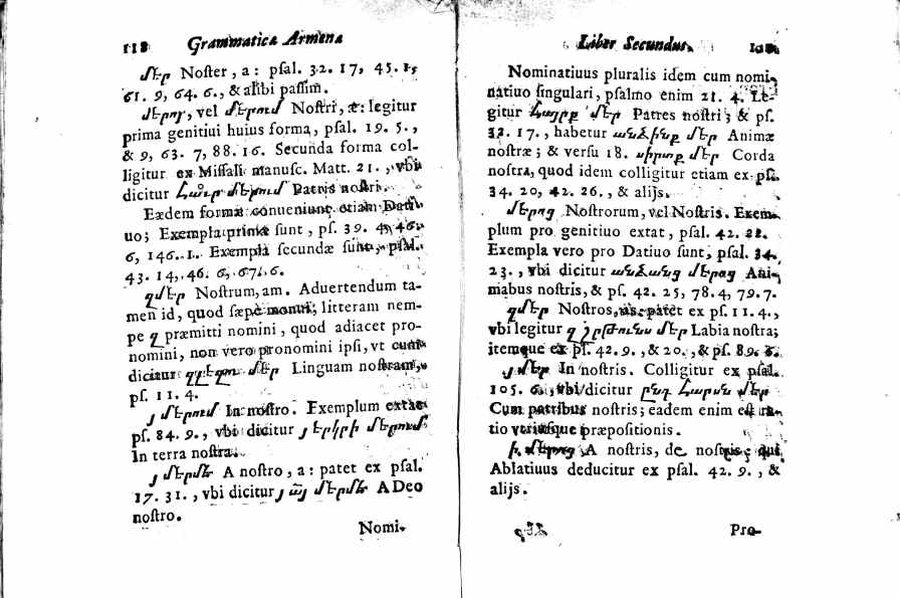 118 Grammaticæ Armenæ
մեր Noster, a: psal. 32. 17, 45. 1,
61. 9, 64. 6., & alibi passim.
մերոյ, vel մերում Nostri, æ: legitur
prima genitiui huius forma, psal. 19. 5.,
& 9, 63. 7, 88. 16. Secunda forma col-
ligitur ex Missali manusc. Matt. 21., vbi
dicitur մերում Patris nostri.
Eædem formæ conueniunt etiam Dati-
uo; Exempla primæ sunt, ps. 39. 4, 46.
6, 146. 1. Exempla secundæ sunt, psal.
43. 14, 46. 6, 67. 6.
զմեր Nostrum, am. Aduertendum ta-
men id, quod sæpe monui; litteram nem-
pe զ præmitti nomini, quod adiacet pro-
nomini, non vero pronomini ipsi, vt cum
dicitur զլեզու մեր Linguam nostram,
ps. 11. 4.
յ մերում In nostro. Exemplum extat
ps. 84. 9., vbi dicitur յ երկրի մերում
In terra nostra.
յ մերմէ A nostro, a: patet ex psal.
17. 31., vbi dicitur յ ած մերմէ A Deo
nostro.
Nomi-
Liber Secundus.
Nominatiuus pluralis idem cum nomi-
natiuo singulari, psalmo enim 21. 4. Le-
gitur Հարք մեր Patres nostri; & ps.
32. 17., habetur անձինք մեր Animæ
nostræ; & versu 18. սիրտք մեր Corda
nostra, quod idem colligitur etiam ex ps.
34. 20, 42. 26., & alijs.
մերոց Nostrorum, vel Nostris. Exem-
plum pro genitiuo extat, psal. 42. 22.
Exempla vero pro Datiuo sunt, psal. 34.
23., vbi dicitur անձանց մերոց Ani-
mabus nostris, & ps. 42. 25, 78. 4, 79. 7.
զմեր Nostros, as, patet ex ps. 11. 4.,
vbi legitur զ շրթունս մեր Labia nostra;
itemque ex ps. 42. 9., & 20., & ps. 89.
յ մեր In nostris. Colligitur ex psal.
105. 6., vbi dicitur ընդ Հարսն մեր
Cum patribus nostris; eadem enim est ra-
tio vtriusque præpositionis.
ի մերոց A nostris, de nostris; qui
Ablatiuus deducitur ex psal. 42. 9., &
alijs.
Pro-